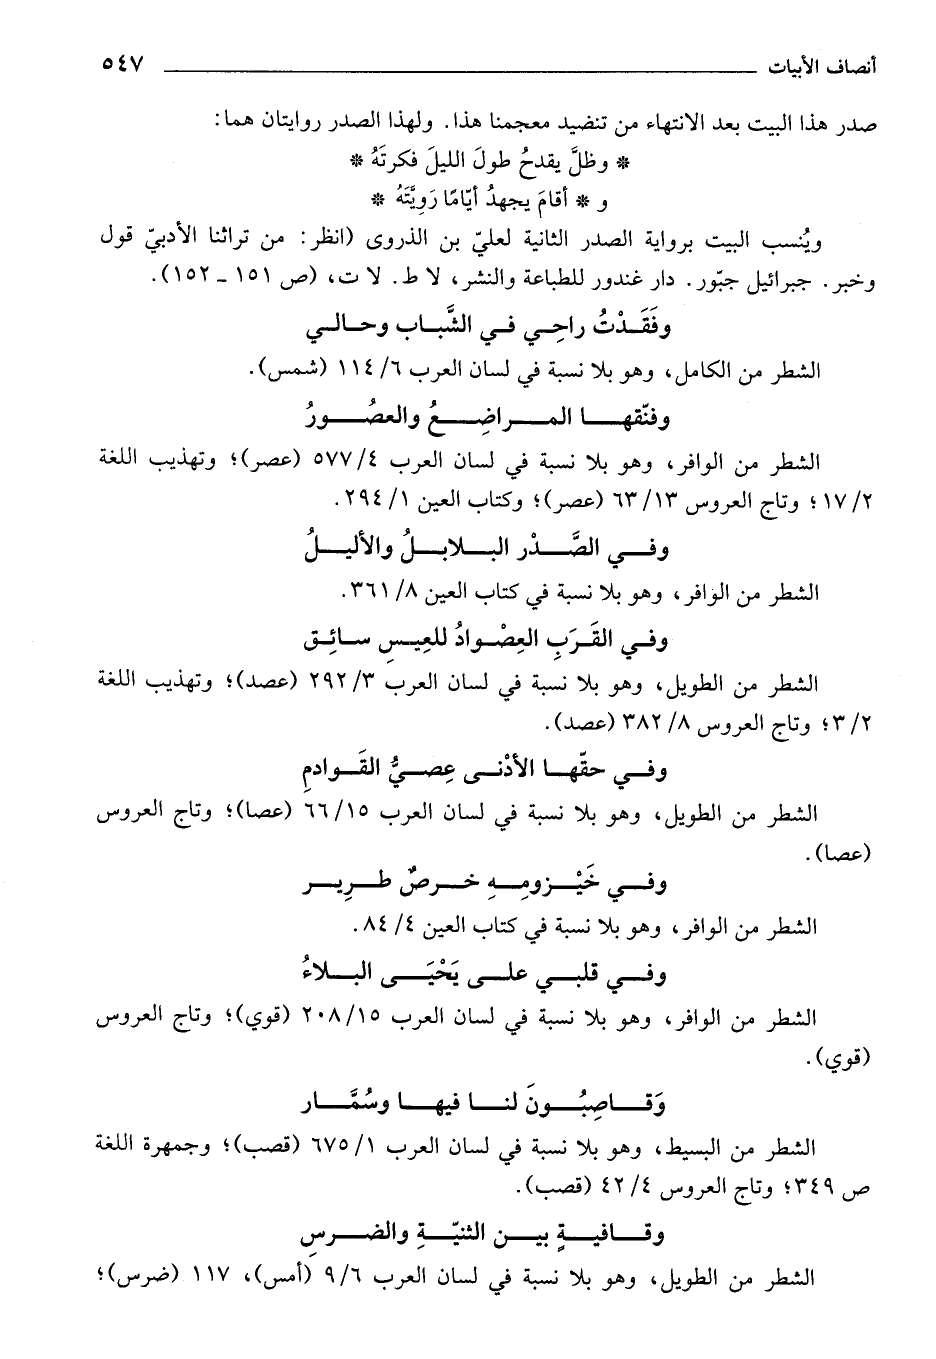 أنصاف الأبيات ٥٤٧
صدر هذا البيت بعد الانتهاء من تنضيد معجمنا هذا. ولهذا الصدر روايتان هما:
* وظلَّ يقدحُ طولَ الليلَ فكرتَهُ *
و * أقامَ يجهدُ أيّامًا رَوِيَّتَهُ *
ويُنسب البيت برواية الصدر الثانية لعليّ بن الذروى (انظر: من تراثنا الأدبيّ قول
وخبر. جبرائيل جبّور. دار غندور للطباعة والنشر، لا ط. لا ت، (ص ١٥١ ـ ١٥٢).
وفَقَدْتُ راحِي في الشَّباب وحالي
الشطر من الكامل، وهو بلا نسبة في لسان العرب ٦/ ١١٤ (شمس).
وفنّقها المراضِعُ والعصُورُ
الشطر من الوافر، وهو بلا نسبة في لسان العرب ٤/ ٥٧٧ (عصر)؛ وتهذيب اللغة
٢/ ١٧؛ وتاج العروس ١٣/ ٦٣ (عصر)؛ وكتاب العين ١/ ٢٩٤.
وفي الصَّدْر البلابلُ والأليلُ
الشطر من الوافر، وهو بلا نسبة في كتاب العين ٨/ ٣٦١.
وفي القَرَبِ العِصْوادُ للعِيسِ سائِق
الشطر من الطويل، وهو بلا نسبة في لسان العرب ٣/ ٢٩٢ (عصد)؛ وتهذيب اللغة
٢/ ٣؛ وتاج العروس ٨/ ٣٨٢ (عصد).
وفي حقّها الأدْنى عِصيُّ القَوادمِ
الشطر من الطويل، وهو بلا نسبة في لسان العرب ١٥/ ٦٦ (عصا)؛ وتاج العروس
(عصا).
وفي خَيْزومِهِ خرصٌ طرِير
الشطر من الوافر، وهو بلا نسبة في كتاب العين ٤/ ٨٤.
وفي قلبي على يَحْيَى البلاءُ
الشطر من الوافر، وهو بلا نسبة في لسان العرب ١٥/ ٢٠٨ (قوي)؛ وتاج العروس
(قوي).
وَقاصِبُونَ لنا فيها وسُمَّار
الشطر من البسيط، وهو بلا نسبة في لسان العرب ١/ ٦٧٥ (قصب)؛ وجمهرة اللغة
ص ٣٤٩؛ وتاج العروس ٤/ ٤٢ (قصب).
وقافيةٍ بين الثنيّةِ والضرسِ
الشطر من الطويل، وهو بلا نسبة في لسان العرب ٦/ ٩ (أمس)، ١١٧ (ضرس)؛